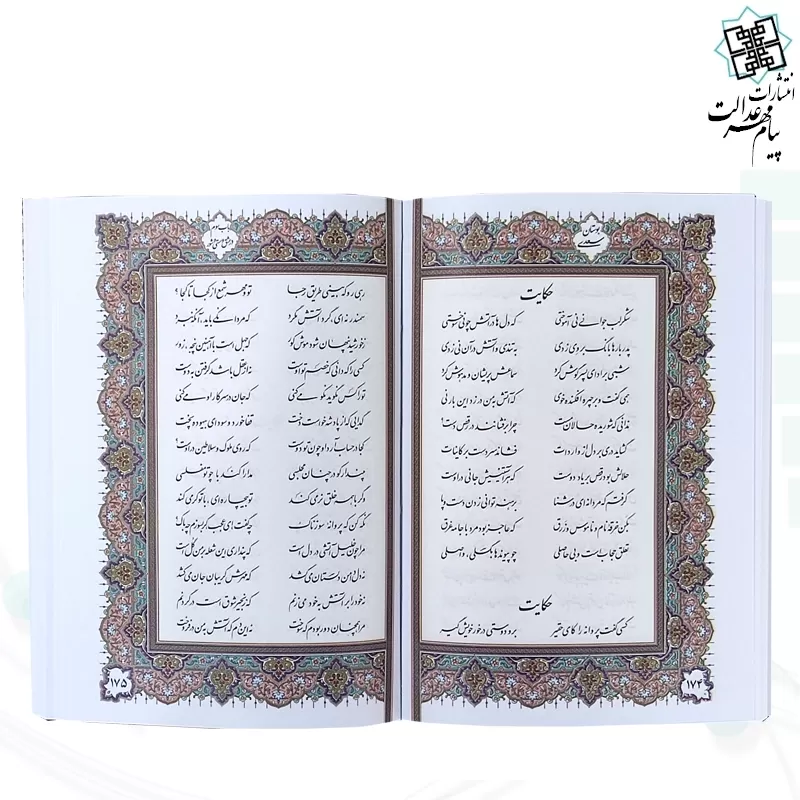 انتشارات
پیام مهر عدالت
بوستان
سعدی
حکایت
شکر لب جوانی نی آموختی که دل ها در آتش چو نی سوختی
پدر بارها بانگ بر وی زدی به تندی و آتش در آن نی زدی
شبی بر ادای پسر گوش کرد سماعش پریشان و مدهوش کرد
همی گفت و بر چهره افکنده خوی که آتش به من در زد این بار نی
ندانی که شوریده حالان مست چرا برفشانند در رقص دست؟
گشاید دری بر دل از واردات فشاند سر دست بر کاینات
حلالش بود رقص بر یاد دوست که هر آستینیش جانی در اوست
گرفتم که مردانه ای در شنا برهنه توانی زدن دست و پا
بکن خرقه نام و ناموس و زرق که عاجز بود مرد با جامه غرق
تعلق حجاب است و بی حاصلی چو پیوندها بگسلی، واصلی
حکایت
کسی گفت پروانه را کای حقیر برو دوستی در خور خویش گیر
۱۷۴
باب سوم
در عشق و مستی و شور
رهی رو که بینی طریق رجا تو و مهر شمع از کجا تا کجا؟
سمندر نه ای، گرد آتش مگرد که مردانگی باید، آنگه نبرد
ز خورشید پنهان شود موش کور که جهل است با آهنین پنجه، زور
کسی را که دانی که خصم تو اوست نه از عقل باشد گرفتن به دوست
تو را کس نگوید نکو می کنی که جان در سر کار او می کنی
گدایی که از پادشه خواست دخت قفا خورد و سودای بیهوده پخت
کجا در حساب آرد او چون تو دوست که روی ملوک و سلاطین در اوست؟
مپندار کو در چنان مجلسی مدارا کند با چو تو مفلسی
وگر با همه خلق نرمی کند تو بیچاره ای، با تو گرمی کند
نگه کن که پروانه سوزناک چه گفت ای عجب گر بسوزم چه باک؟
مرا چون خلیل آتشی در دل است که پنداری این شعله بر من گل است
نه دل دامن دلستان می کشد که مهرش گریبان جان می کشد
نه خود را بر آتش به خود می زنم که زنجیر شوق است در گردنم
مرا همچنان دور بودم که سوخت نه این دم که آتش به من در فروخت
۱۷۵